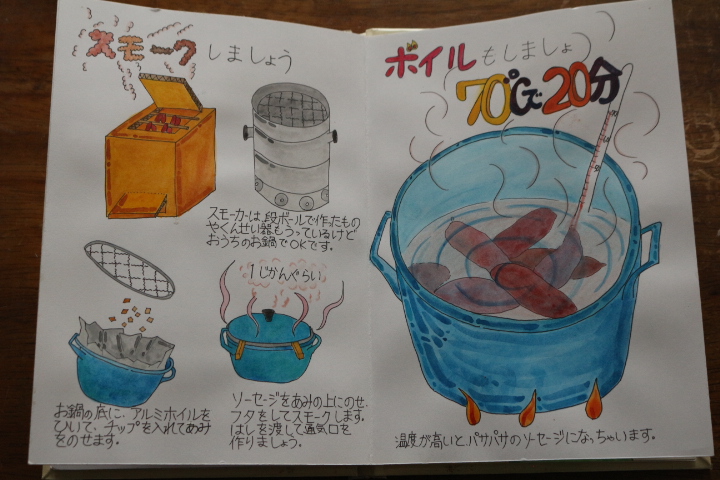 スモークしましょう
スモーカーは、段ボールで作ったもの
やくんせい器もうっているけど
おうちのお鍋でOKです。
お鍋の底に、アルミホイルを
ひいて、チップを入れてあみ
をのせます。
1じかんぐらい
ソーセージをあみの上にのせ、
フタをしてスモークします。
はしを渡して通気口を
作りましょう。
ボイルもしましょ
70℃で20分
温度が高いとパサパサのソーセージになっちゃいます。